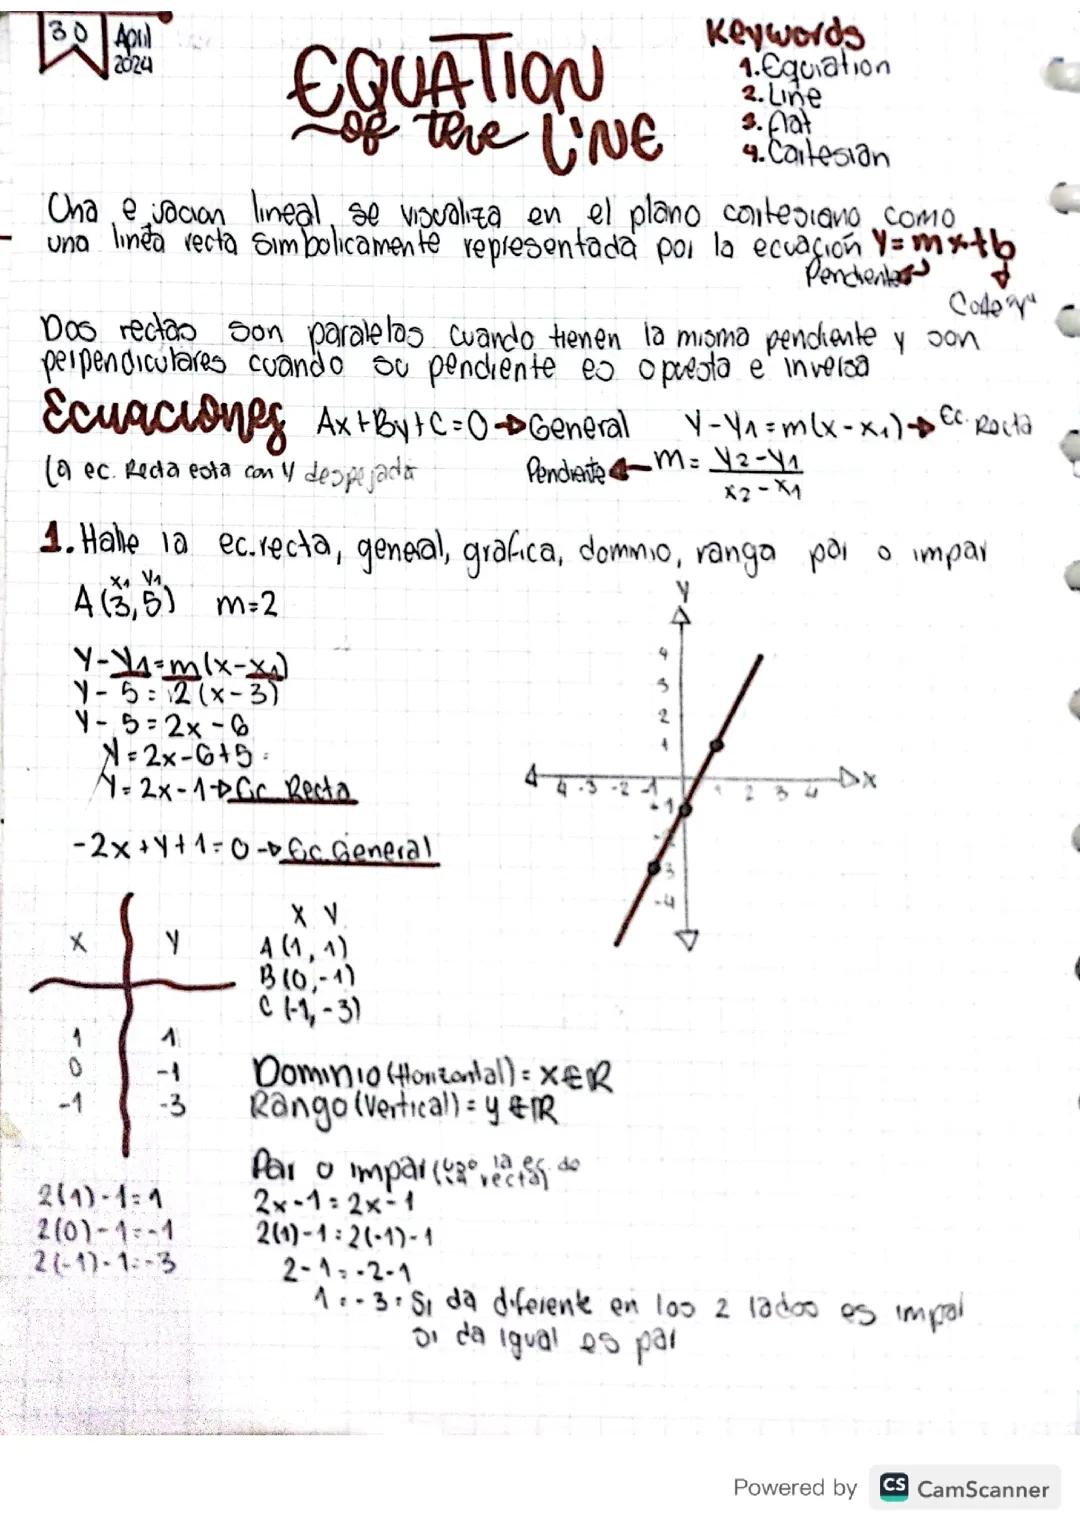 30 April
2024
EQUATION
of the LINE
Keywords
1. Equation
2. Line
3. flat
4. Cartesian
Una ecuacion lineal se visualiza en el plano cartesiano como
una linea recta simbolicamente representada por la ecuación y=mx+b
Pendiente
Corte "y"
Dos rectas son paralelas cuando tienen la misma pendiente y son
perpendiculares cuando su pendiente es opuesta e inversa
Ecuaciones Ax+By+C=0→General y-y1=m(x-x1)→Ec. Recta
La ec. Recta esta con y despejada Pendiente←m= y2-y1
x2-x1
1. Halle la ec. recta, general, grafica, dominio, rango par o impar
x1 y1
A(3,5) m=2
y-y1=m(x-x1)
y-5=2(x-3)
y-5=2x-6
y=2x-6+5
y=2x-1→Ec Recta
-2x+y+1=0→Ec.General
y
4
3
2
1
-4 -3 -2 -1 1 2 3 4 x
-1
-2
-3
-4
x y
1 1
0 -1
-1 -3
x y
A(1,1)
B(0,-1)
C(-1,-3)
Dominio (Horizontal)= x∈R
Rango (Vertical)= y∈R
2(1)-1=1
2(0)-1=-1
2(-1)-1=-3
Par o impar ( la ec de
recta)
2x-1=2x-1
2(1)-1=2(-1)-1
2-1=-2-1
1=-3= Si da diferente en los 2 lados es impar
Si da igual es par
Powered by CS CamScanner